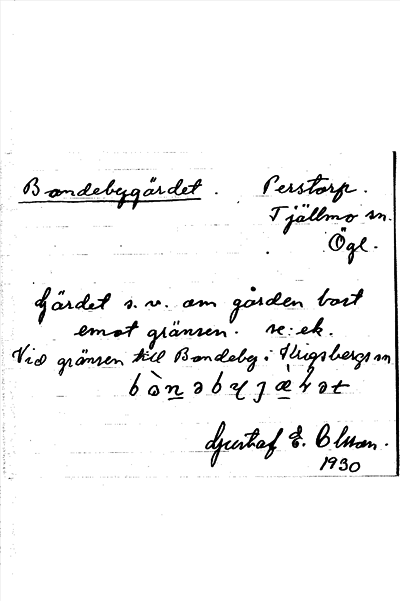 Bondebygärdet. Perstorp.
Tjällmo sn.
Ögl.
Gärdet s.v. om gården bort
emot gränsen. se: ek.
Vid gränsen till Bondeby i Krigsbergs sn
Gustaf E. Olsson.
1930